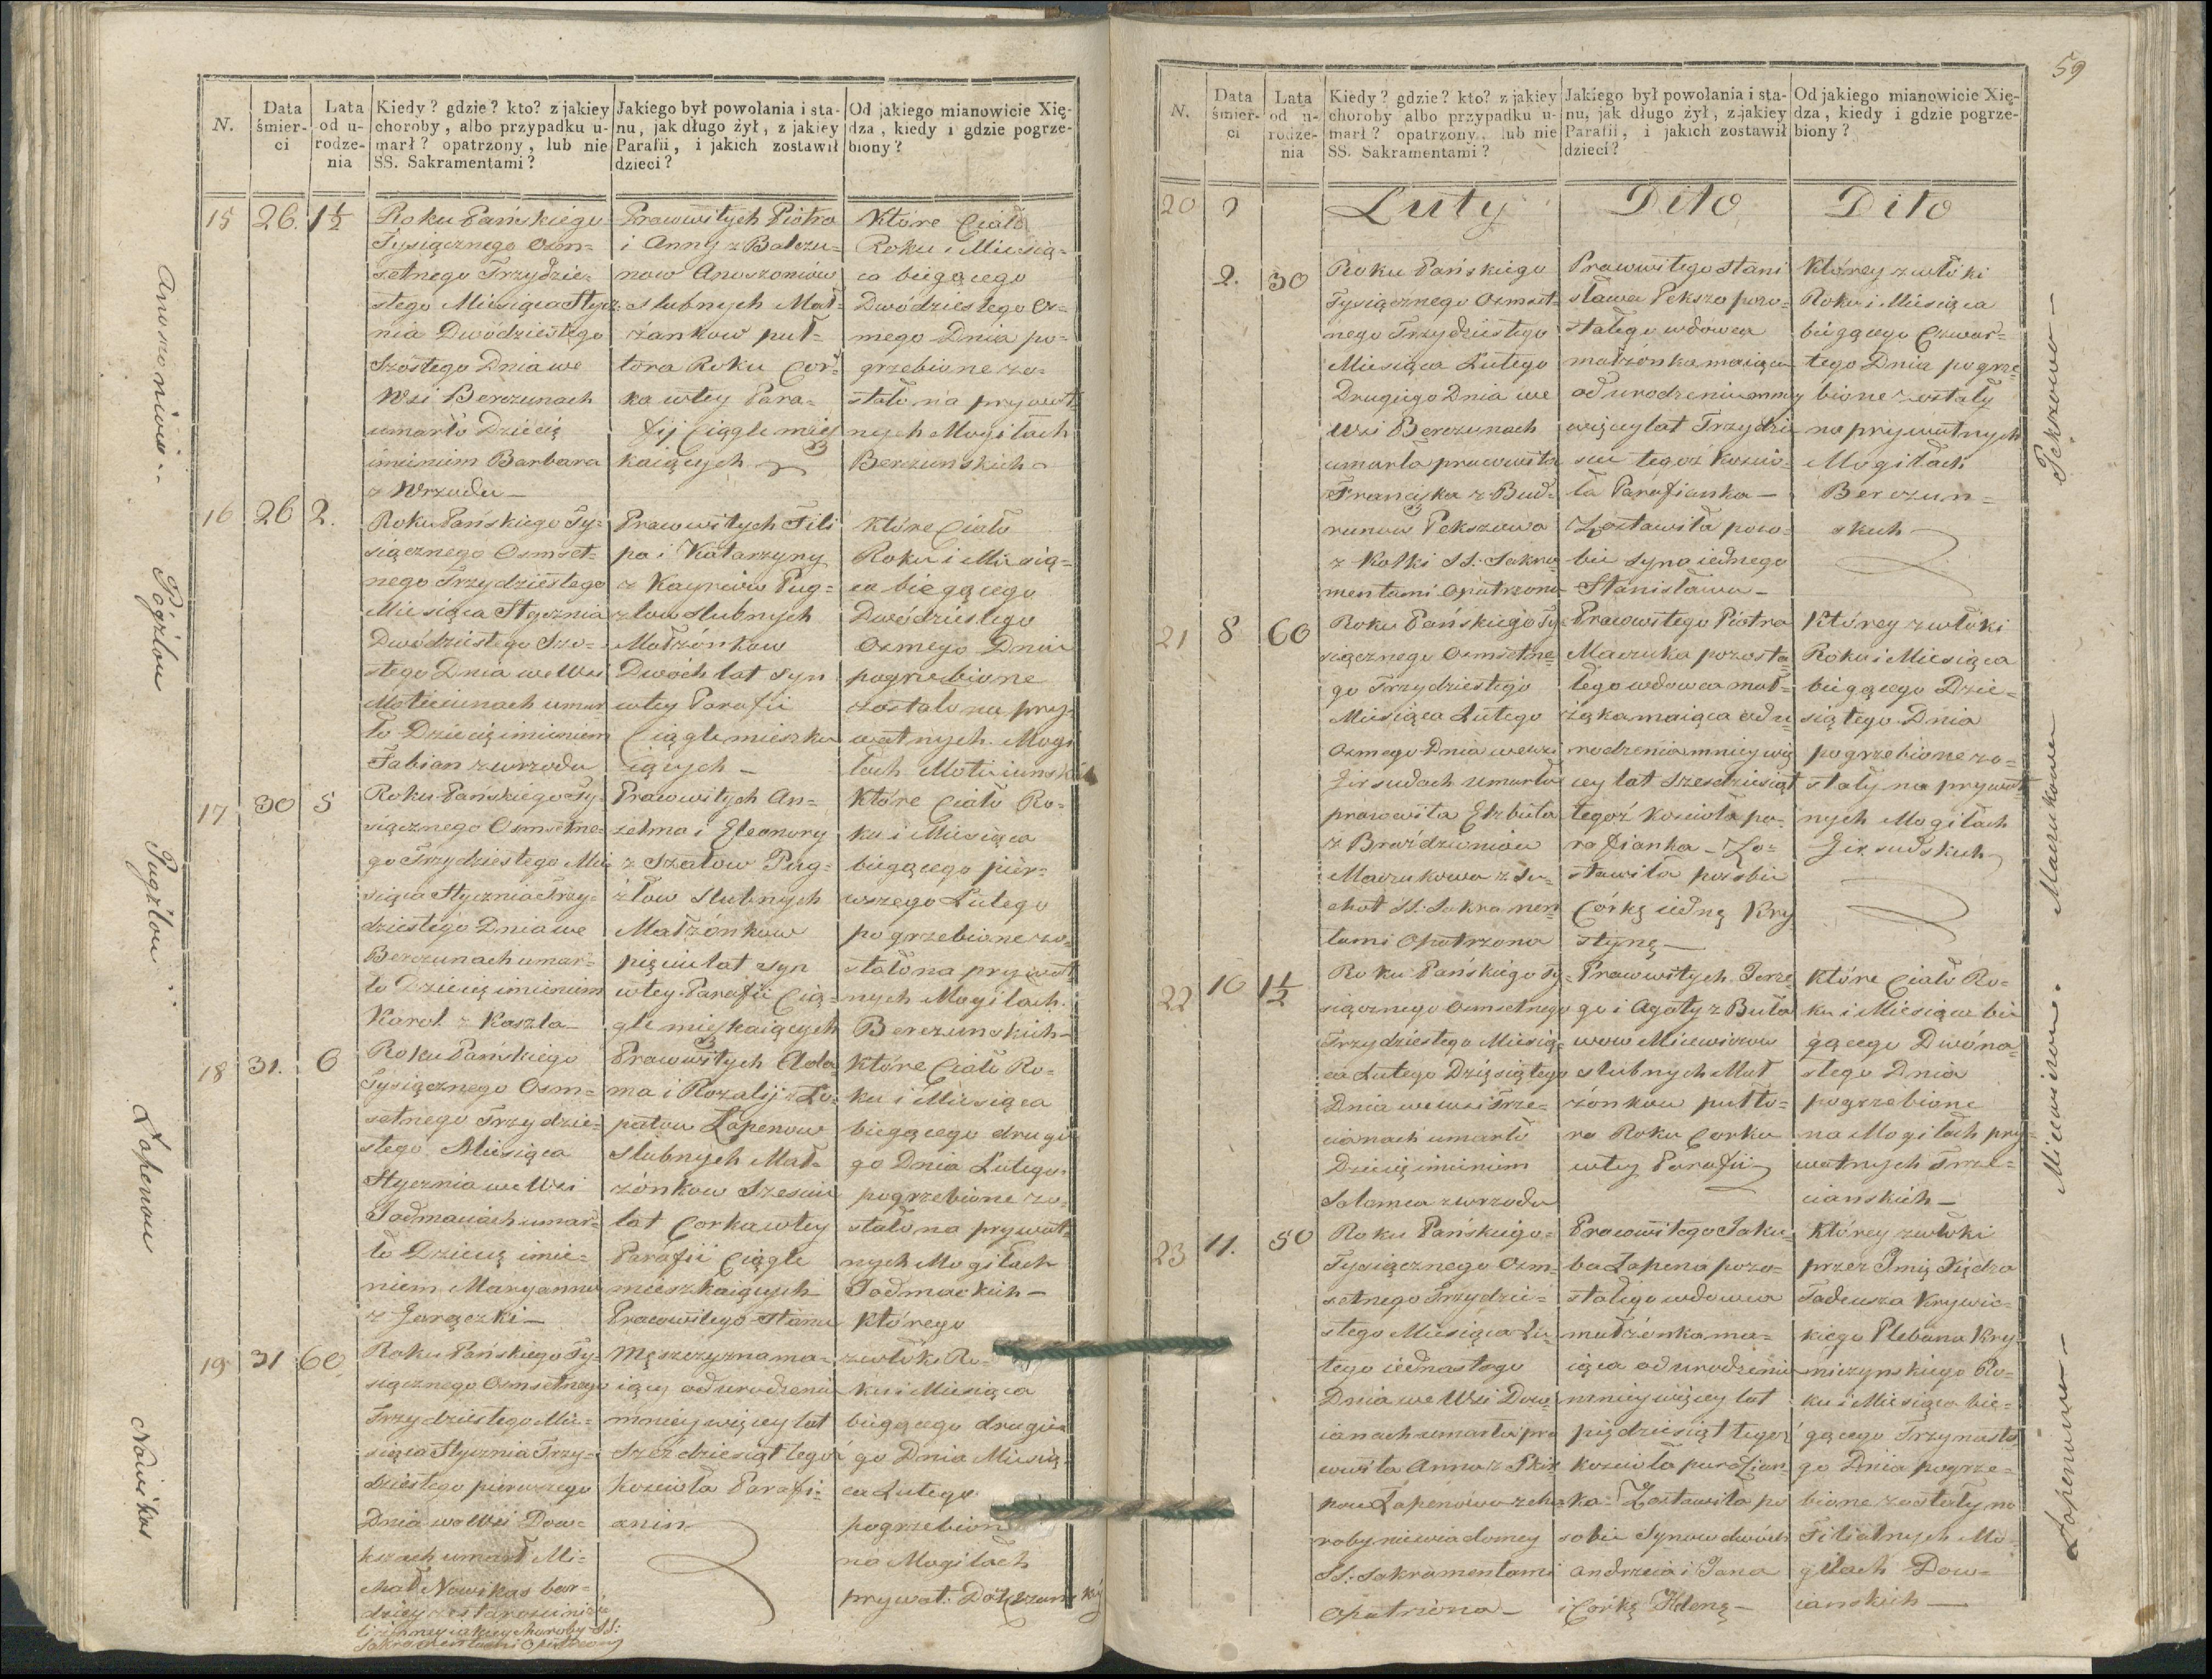 N.
Data śmier- ci
Lata od u- rodze- nia
Kiedy? gdzie? kto? z jakiey
choroby, albo przypadku u-
marł? opatrzony, lub nie
SS. Sakramentami?
Jakiego był powołania i sta-
nu, jak długo żył, z jakiey
Parafii, i jakich zostawił
dzieci?
Od jakiego mianowicie Xię-
dza, kiedy i gdzie pogrze-
biony?
15
26.
1½
Roku Pańskiego
Tysiącznego Osm=
setnego Trzydzie=
stego Miesiąca Stycz=
nia Dwódziestego
Szostego Dnia we
Wsi Berczunach
umarło Dziecię
imieniem Barbara
z Wrzodu —
Prawowitych Piotra
i Anny z Balczu=
now Anuszoniow
slubnych Mał=
żonkow puł=
tora Roku Cor=
ka wtey Para=
fij Ciągle miesz
kaiących
Które Ciało
Roku i Miesią=
ca biegącego
Dwódziestego Os=
mego Dnia po=
grzebione zo=
stało na prywat
nych Mogiłach
Berczunskich
16
26
2.
Roku Pańskiego Ty=
siącznego Osmset=
nego Trzydziestego
Miesiąca Stycznia
Dwódziestego Szo=
stego Dnia we Wsi
Moteiunach umar
ło Dziecię imieniem
Fabian z wrzodu
Prawowitych Fili
pa i Katarzyny
z Kayrów Pug=
zlow slubnych
Małżonkow
Dwóch lat syn
wtey Parafii
Ciągle mieszka
iących —
Które Ciało
Roku i Miesią=
ca biegącego
Dwódziestego
Osmego Dnia
pogrzebione
zostało na pry=
watnych Mogi
łach
17
30
5
Roku Pańskiego Ty=
siącznego Osmsetne=
go Trzydziestego Mie
siąca Stycznia Trzy=
dziestego Dnia we
Berczunach umar=
ło Dziecię imieniem
Karol z Kaszla
Prawowitych An=
zelma i Eleonory
z Szatow Pug=
złow slubnych
Małżónkow
pięciu lat syn
wtey Parafii Cią=
gle mieszkaiących
Które Ciało Ro=
ku i Miesiąca
biegącego pier=
wszego Lutego
pogrzebione zo=
stało na prywat
nych Mogiłach
Berczunskich —
18
31.
6
Roku Pańskiego
Tysiącznego Osm=
setnego Trzydzie=
stego Miesiąca
Stycznia we Wsi
Jodmaciach umar=
ło Dziecię imie=
niem Maryanna
z Gorączki —
Prawowitych Ada=
ma i Rozalij z Ło=
patow Łapenow
slubnych Mał=
zónkow Szesciu
lat Corka wtey
Parafii Ciągle
mieszkaiących
Które Ciało Ro=
ku i Miesiąca
biegącego drugi
go Dnia Lutego
pogrzebione zo=
stało na prywat=
nych Mogiłach
Jodmackich —
19
31
60
Roku Pańskiego Ty=
siącznego Osmsetnego
Trzydziestego Mie=
siąca Stycznia Trzy=
dziestego pierwszego
Dnia we Wsi Dow=
kszach umarł Mi=
chał Nowikas bar=
dziey ze starości niż
SS:
Sakramentami Opatrzony
Prawowitego Stanu
Męszczyzna ma=
iący od urodzenia
mniey więcey lat
Szesdziesiąt tegoż
Kościoła Parafi=
anin
Którego
zwłoki Ro=
ku i Miesiąca
biegącego drugie
go Dnia Miesią
ca Lutego
pogrzebion
na Mogiłach
prywat:
Anuszoniow..
Pógźlow
Pugźlow
Łapenow
Nowikas
59
N.
Data śmier- ci
Lata od u- rodze- nia
Kiedy? gdzie? kto? z jakiey
choroby albo przypadku u-
marł? opatrzony, lub nie
SS. Sakramentami?
Jakiego był powołania i sta-
nu, jak długo żył, z jakiey
Parafii, i jakich zostawił
dzieci?
Od jakiego mianowicie Xię-
dza, kiedy i gdzie pogrze-
biony?
20
2
Luty
Dito
Dito
2.
30
Roku Pańskiego
Tysiącznego Osmset=
nego Trzydziestego
Miesiąca Lutego
Drugiego Dnia we
Wsi Berczunach
umarła prawowita
Franciszka z Bud=
runow Pekszowa
z Kołki SS: Sakra=
mentami Opatrzona
Prawowitego Stani
sława Pekszo pozo=
stałego wdowca
małżónka maiąca
od urodzenia mniey
więcey lat Trzydzie
sci tegoż Koscio=
ła Parafianka —
Zostawiła poso=
bie syna iednego
Stanisława —
Którey zwłoki
Roku i Miesiąca
biegącego Czwar=
tego Dnia pogrze=
bione zostały
na prywatnych
Mogiłach
Berczun=
skich
21
8
60
Roku Pańskiego Ty=
siącznego Osmsetne=
go Trzydziestego
Miesiąca Lutego
Osmego Dnia we wsi
Girsudach umarła
prawowita Elzbieta
z Bróżdzuniow
Maczukowa z Su=
chot SS: Sakramen=
tami Opatrzona
Prawowitego Piotra
Maczuka pozosta=
łego wdowca mał=
żąka maiąca od u
rodzenia mniey wię
cey lat Szesdziesiąt
tegoż Kościoła pa=
rafianka — Zo=
stawiła posobie
Córkę iedną Kry
stynę —
Którey zwłoki
Roku i Miesiąca
biegącego Dzie=
siątego Dnia
pogrzebione zo=
stały na prywat
nych Mogiłach
Girsudskich
22
10
1½
Roku Pańskiego Ty=
siącznego Osmsetnego
Trzydziestego Miesią=
ca Lutego Dziesiątego
Dnia we wsi Trze=
cianach umarło
Dziecię imieniem
Salomea z wrzodu
Prawowitych Jerze
go i Agaty z Buła
wow Micewiczow
slubnych Mał
żónkow pułto=
ra Roku Corka
wtey Parafii
Które Ciało Ro=
ku i Miesiąca bie
gącego Dwóna=
stego Dnia
pogrzebione
na Mogiłach pry=
watnych Trze=
cianskich —
23
11.
50
Roku Pańskiego=
Tysiącznego Osm=
setnego Trzydzie=
stego Miesiąca Lu=
tego iednastego
Dnia we Wsi Dow=
cianach umarła pra
wowita Anna z
now Łapenowa z cho
roby niewiadomey
SS: Sakramentami
Opatrzona —
Prawowitego Jaku=
ba Łapena pozo=
stałego wdowca
małżónka ma=
iąca od urodzenia
mniey więcey lat
pięćdziesiąt tegoż
kościoła parafian=
ka — Zostawiła po
sobie Synow dwóch
Andrzeia i Jana
i Córkę Helenę —
Którey zwłoki
przez Jmię Xiędza
Tadeusza Krywic=
kiego Plebana Kry=
niczynskiego Ro=
ku i Miesiąca bie=
gącego Trzynaste
go Dnia pogrze=
bione zostały na
Filialnych Mo=
giłach Dow=
cianskich —
Pekszowa —
Maczukowa
Micewiczow.
Łapenowa —